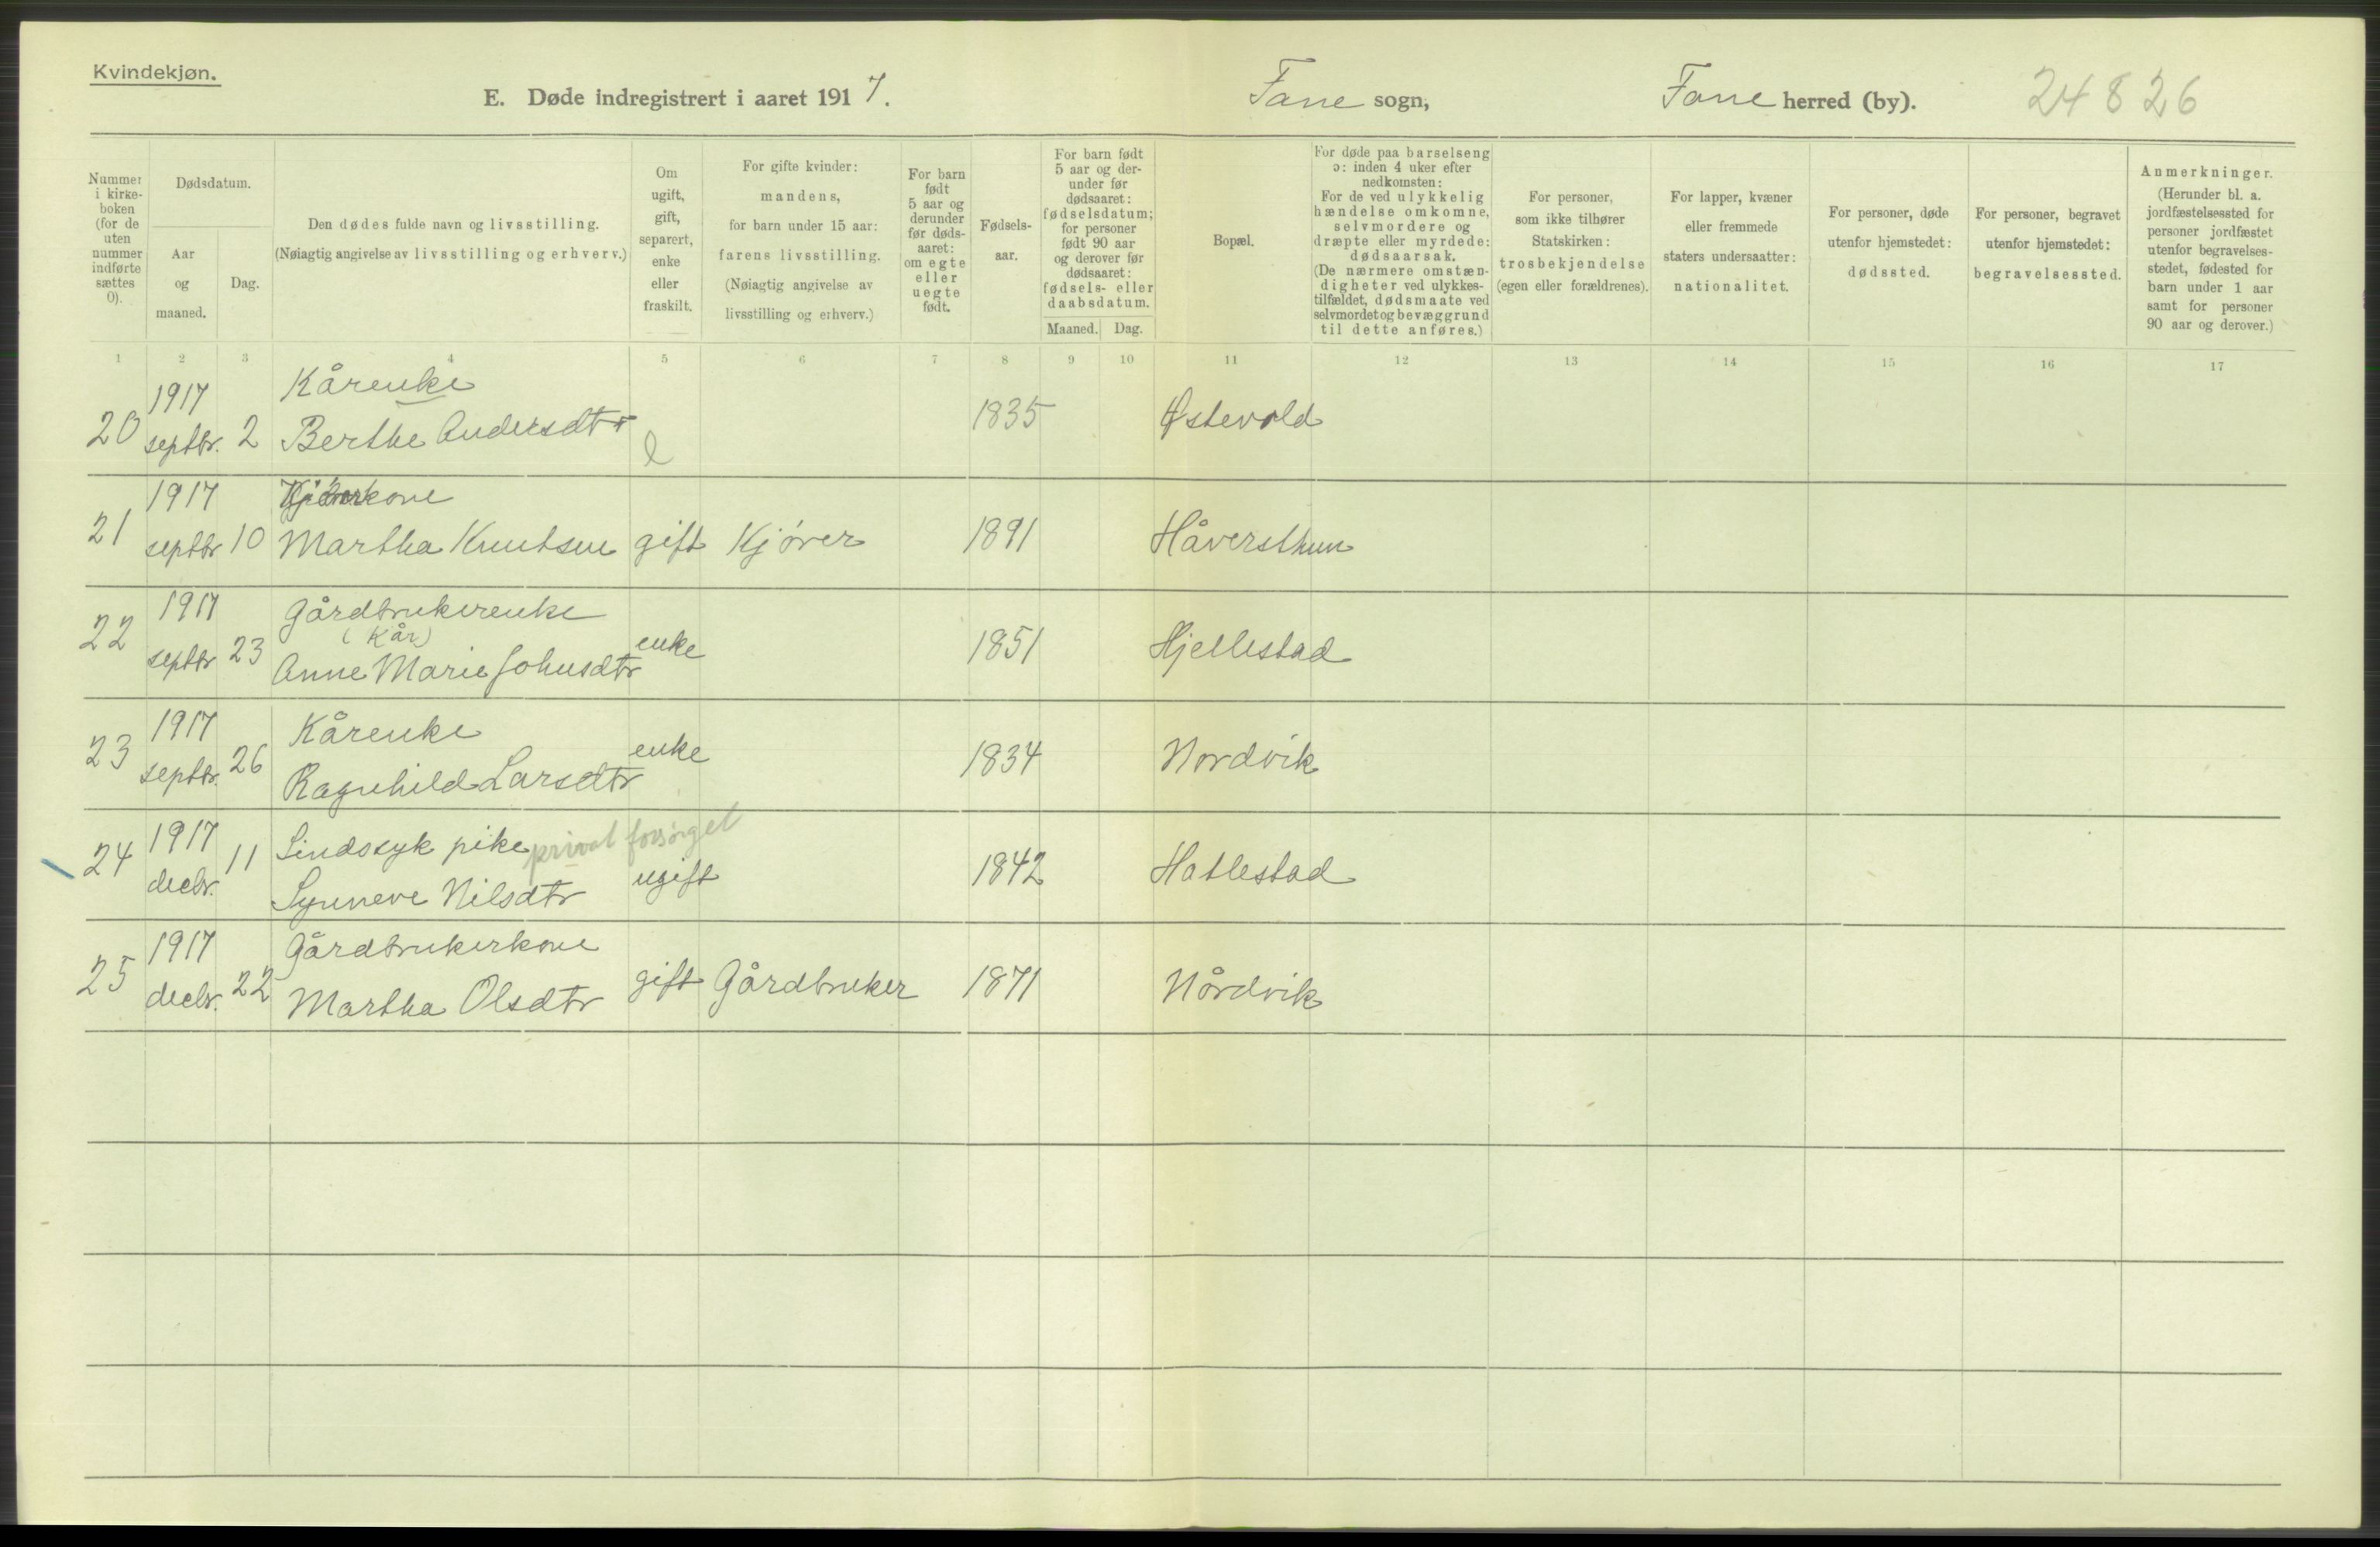 Kvindekjøn.
E. Døde indregistrert i aaret 1917.
Fane sogn,
Fane herred (by).
24826
Nummer
i kirke-
boken
(for de
uten
nummer
indførte
sættes
0).
Dødsdatum.
Aar
og
maaned.
Dag.
Den dødes fulde navn og livsstilling.
(Nøiagtig angivelse av livsstilling og erhverv.)
Om
ugift,
gift,
separert,
enke
eller
fraskilt.
For gifte kvinder:
mandens,
for barn under 15 aar:
farens livsstilling.
(Nøiagtig angivelse av
livsstilling og erhverv.)
For barn
født
5 aar og
derunder
før døds-
aaret:
om egte
eller
uegte
født.
Fødsels-
aar.
For barn født
5 aar og der-
under før
dødsaaret:
fødselsdatum;
for personer
født 90 aar
og derover før
dødsaaret:
fødsels- eller
daabsdatum.
Maaned. Dag.
Bopæl.
For døde paa barselseng
ɔ: inden 4 uker efter
nedkomsten:
For de ved ulykkelig
hændelse omkomne,
selvmordere og
dræpte eller myrdede:
dødsaarsak.
(De nærmere omstæn-
digheter ved ulykkes-
tilfældet, dødsmaate ved
selvmordet og bevæggrund
til dette anføres.)
For personer,
som ikke tilhører
Statskirken:
trosbekjendelse
(egen eller forældrenes).
For lapper, kvæner
eller fremmede
staters undersaatter:
nationalitet.
For personer, døde
utenfor hjemstedet:
dødssted.
For personer, begravet
utenfor hjemstedet:
begravelsessted.
Anmerkninger.
(Herunder bl. a.
jordfæstelsessted for
personer jordfæstet
utenfor begravelses-
stedet, fødested for
barn under 1 aar
samt for personer
90 aar og derover.)
1 2 3 4 5 6 7 8 9 10 11 12 13 14 15 16 17
1917 Kårenke
20 septbr. 2 Berthe Andersdtr e 1835 Østevold
1917 Kjørerkone
21 septbr 10 Martha Knutsen gift Kjører 1891 Håversthun
1917 Gårdbrukerenke
(Kår)
22 septbr 23 Anne Marie Johnsdtr enke 1851 Hjellestad
1917 Kårenke
23 septbr. 26 Ragnhild Larsdtr enke 1834 Nordvik
1917 Sindssyk pike privat forsørget
24 decbr. 11 Synneve Nilsdtr ugift 1842 Hatlestad
1917 Gårdbrukerkone
25 decbr. 22 Martha Olsdtr gift Gårdbruker 1871 Nårdvik